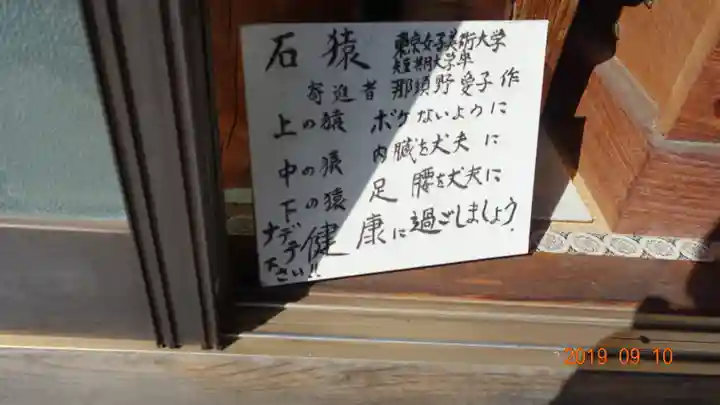 石猿 東京女子美術大学
短期大学卒
寄進者 那須野愛子作
上の猿 ボケないように
中の猿 内臓を丈夫に
下の猿 足腰を丈夫に
ナデテ下さい!! 健康に過ごしましょう.
2019 09 10